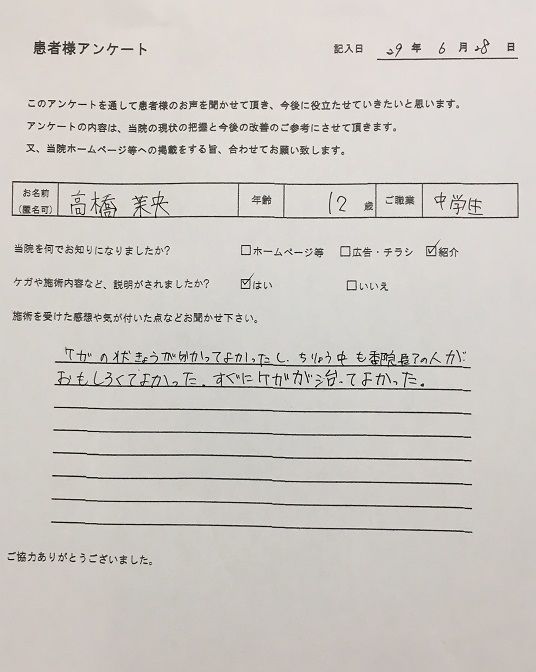 患者様アンケート 記入日 29 年 6 月 28 日
このアンケートを通して患者様のお声を聞かせて頂き、今後に役立たせていきたいと思います。
アンケートの内容は、当院の現状の把握と今後の改善のご参考にさせて頂きます。
又、当院ホームページ等への掲載をする旨、合わせてお願い致します。
お名前 (匿名可) 高橋 茉央 年齢 12 歳 ご職業 中学生
当院を何でお知りになりましたか? □ホームページ等 □広告・チラシ ☑紹介
ケガや施術内容など、説明がされましたか? ☑はい □いいえ
施術を受けた感想や気が付いた点などお聞かせ下さい。
ケガの状きょうが分かってよかったし、ちりょう中も 院長 の人が
おもしろくてよかった。すぐにケガが治ってよかった。
ご協力ありがとうございました。